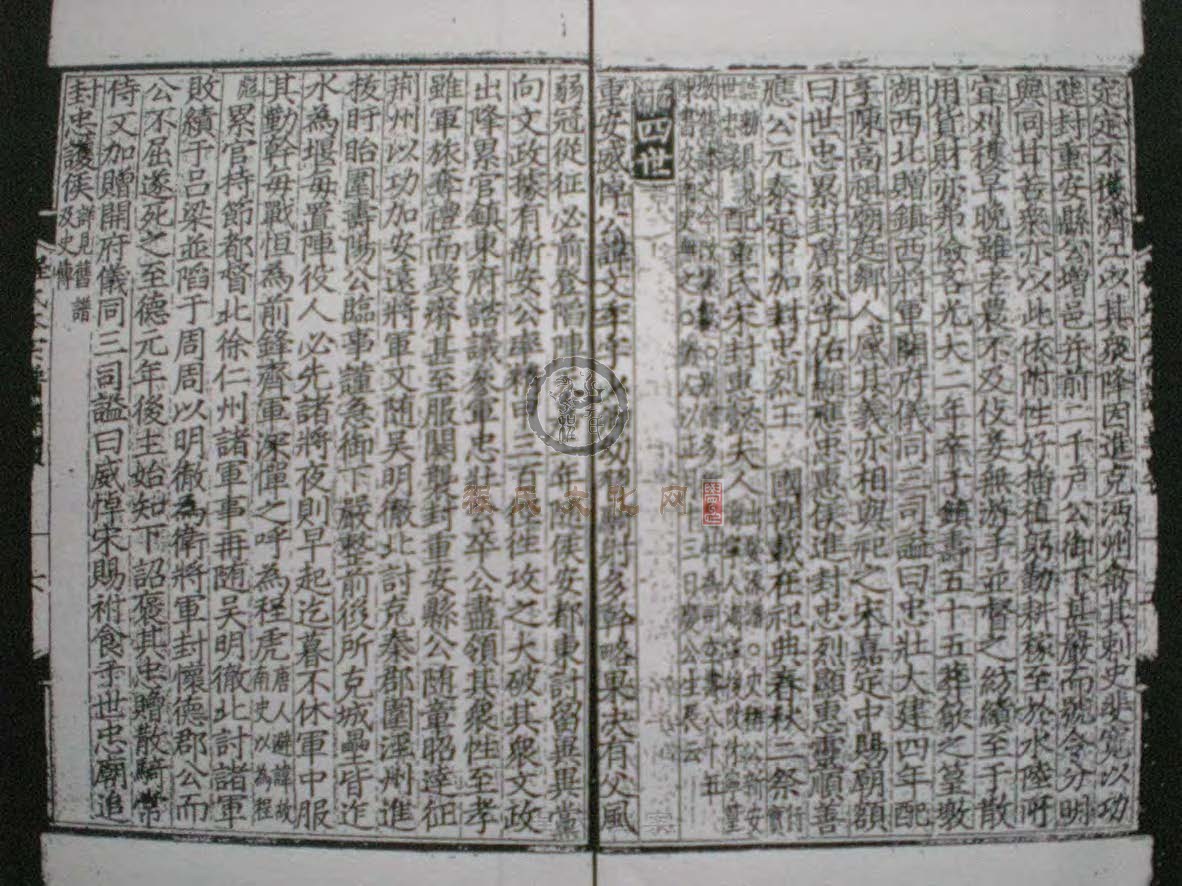 定定不獲濟江以其衆降因進克沔州禽其刺史裴寬以功
進封重安縣公增邑并前二千戶公御下甚嚴而號令分明
與同甘苦衆亦以此依附性好播植躬勤耕稼至於水陸所
宜刈穫早晚雖老農不及伎妾無游手並督之紡績至于散
用貨財亦弗儉吝光大二年卒于鎮壽五十五葬歙之篁墩
湖西北贈鎮西將軍開府儀同三司謚曰忠壯大建四年配
享陳高祖廟庭鄉人感其義亦相與祀之宋嘉定中賜廟額
曰世忠累封廣烈孚佑顯應惠侯進封忠烈顯惠靈順善
應公元泰定中加封忠烈王 國朝載在祀典春秋二祭
配董氏宋封重安夫人
四世
重安威悼公諱文季字少卿幼習騎射多幹略果決有父風
弱冠從征必前登陷陣年隨侯安都東討留異異黨
向文政據有新安公率精甲三百往攻之大破其衆文政
出降累官鎮東府諮議參軍忠壯公卒公盡領其衆性至孝
雖軍旅奪禮而毀瘠甚至服闋襲封重安縣公隨章昭達征
荊州以功加安遠將軍又随吴明徹北討克秦郡圍涇州進
拔盱眙圍壽陽公臨事謹急御下嚴整前後所克城壘皆迮
水為堰每置陣役人必先諸將夜則早起迄暮不休軍中服
其勤幹每戰恒為前鋒齊軍深憚之呼為程虎唐人避諱故南史以為程
彪累官持節都督北徐仁州諸軍事再随吴明徹北討諸軍
敗績于吕梁並䧟于周周以明徹為衛將軍封懷德郡公而
公不屈遂死之至德元年後主始知下詔褒其忠贈散騎常
侍又加贈開府儀同三司謚曰威悼宋賜祔食于世忠廟追
封忠護侯詳見舊譜及史傳